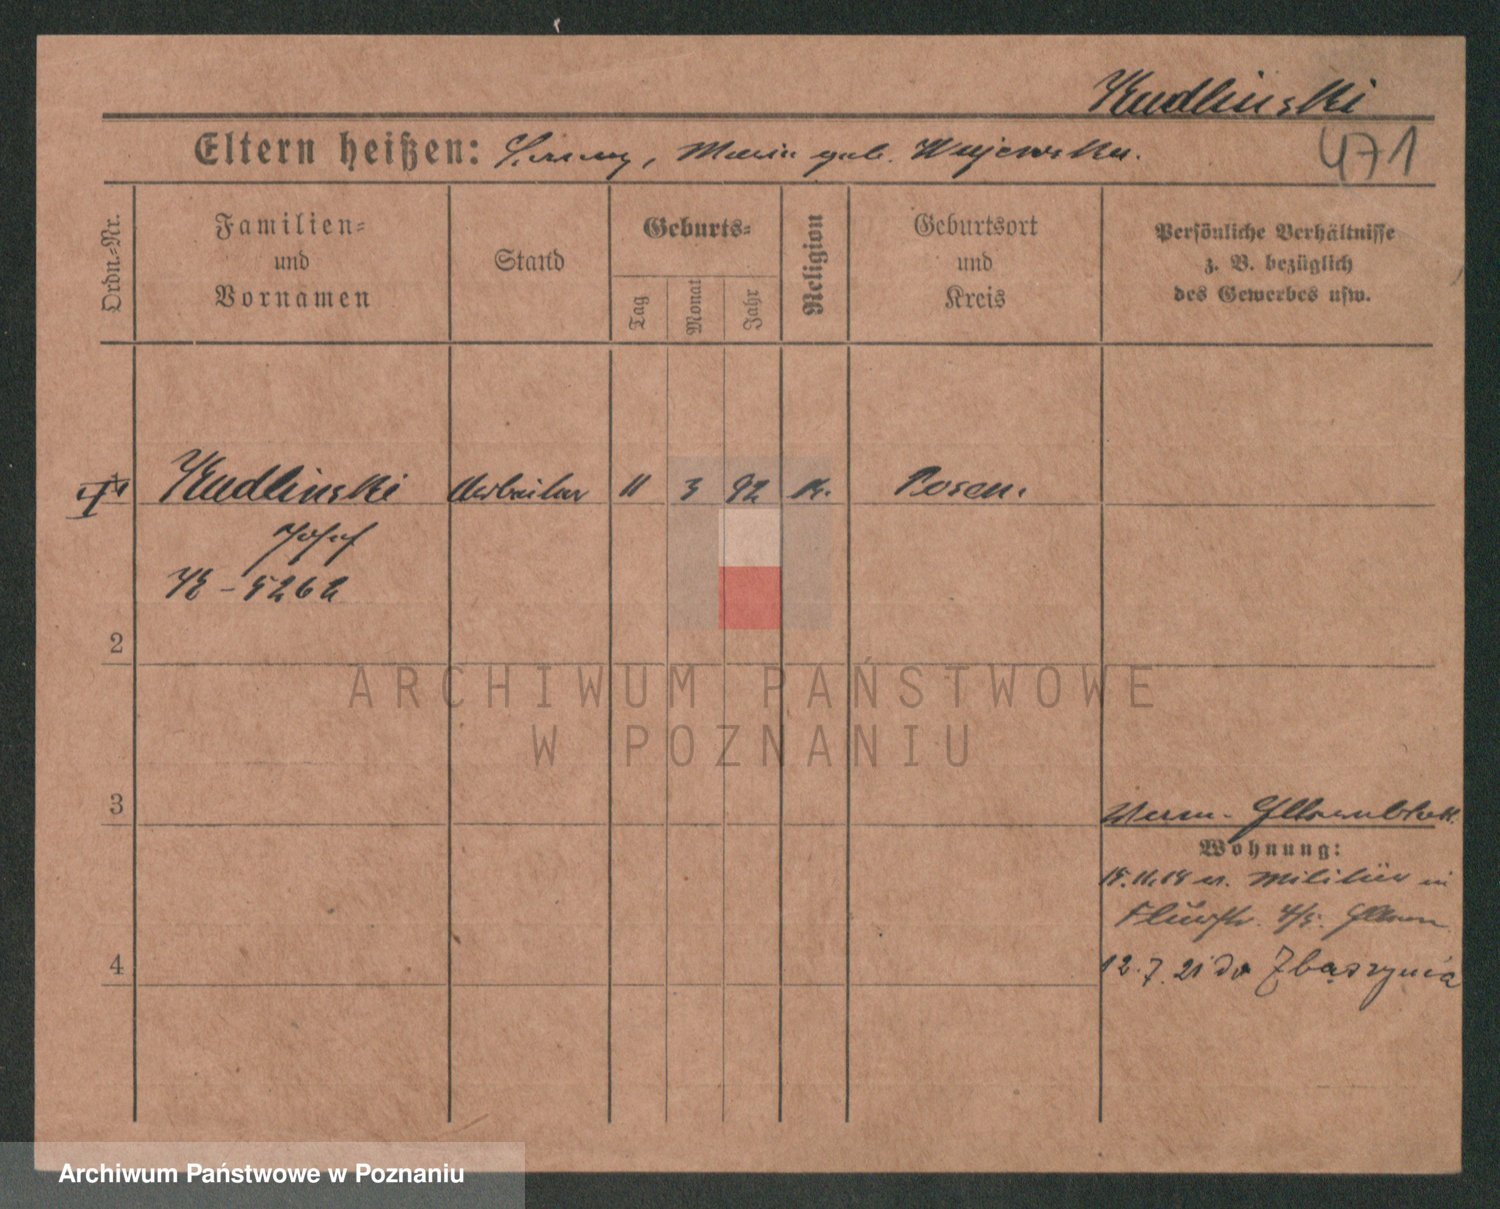 Kudlinski
471
Eltern heißen: Maria geb. Wujewska.
Ordn.-Nr.
Familien-
und
Vornamen
Stand
Geburts-
Tag
Monat
Jahr
Religion
Geburtsort
und
Kreis
Persönliche Verhältnisse
z. B. bezüglich
des Gewerbes usw.
Kudlinski Arbeiter 11 3 92 k. Posen.
Josef
2
3
Wohnung:
Militär in
4
12.7.21 do Zbąszynia
ARCHIWUM PAŃSTWOWE
W POZNANIU
Archiwum Państwowe w Poznaniu